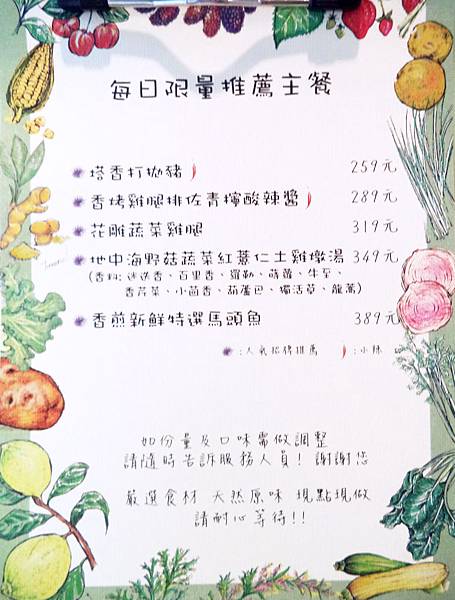 每日限量推薦主餐
塔香打拋豬 259元
香烤雞腿排佐青檸酸辣醬 289元
花雕蔬菜雞腿 319元
地中海野菇蔬菜紅薏仁土雞燉湯 349元
(香料:迷迭香、百里香、羅勒、蒔蘿、牛至、
香芹菜、小茴香、葫蘆巴、獨活草、龍蒿)
香煎新鮮特選馬頭魚 389元
:人氣招牌推薦 :小辣
如份量及口味需做調整
請隨時告訴服務人員!謝謝您
嚴選食材 天然原味 現點現做
請耐心等待!!